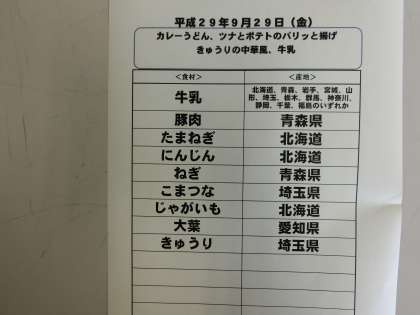 平成29年9月29日（金）
カレーうどん、ツナとポテトのパリッと揚げ
きゅうりの中華風、牛乳
＜食材＞ ＜産地＞
牛乳 北海道、青森、岩手、宮城、山
形、埼玉、栃木、群馬、神奈川、
静岡、千葉、福島のいずれか
豚肉 青森県
たまねぎ 北海道
にんじん 北海道
ねぎ 青森県
こまつな 埼玉県
じゃがいも 北海道
大葉 愛知県
きゅうり 埼玉県